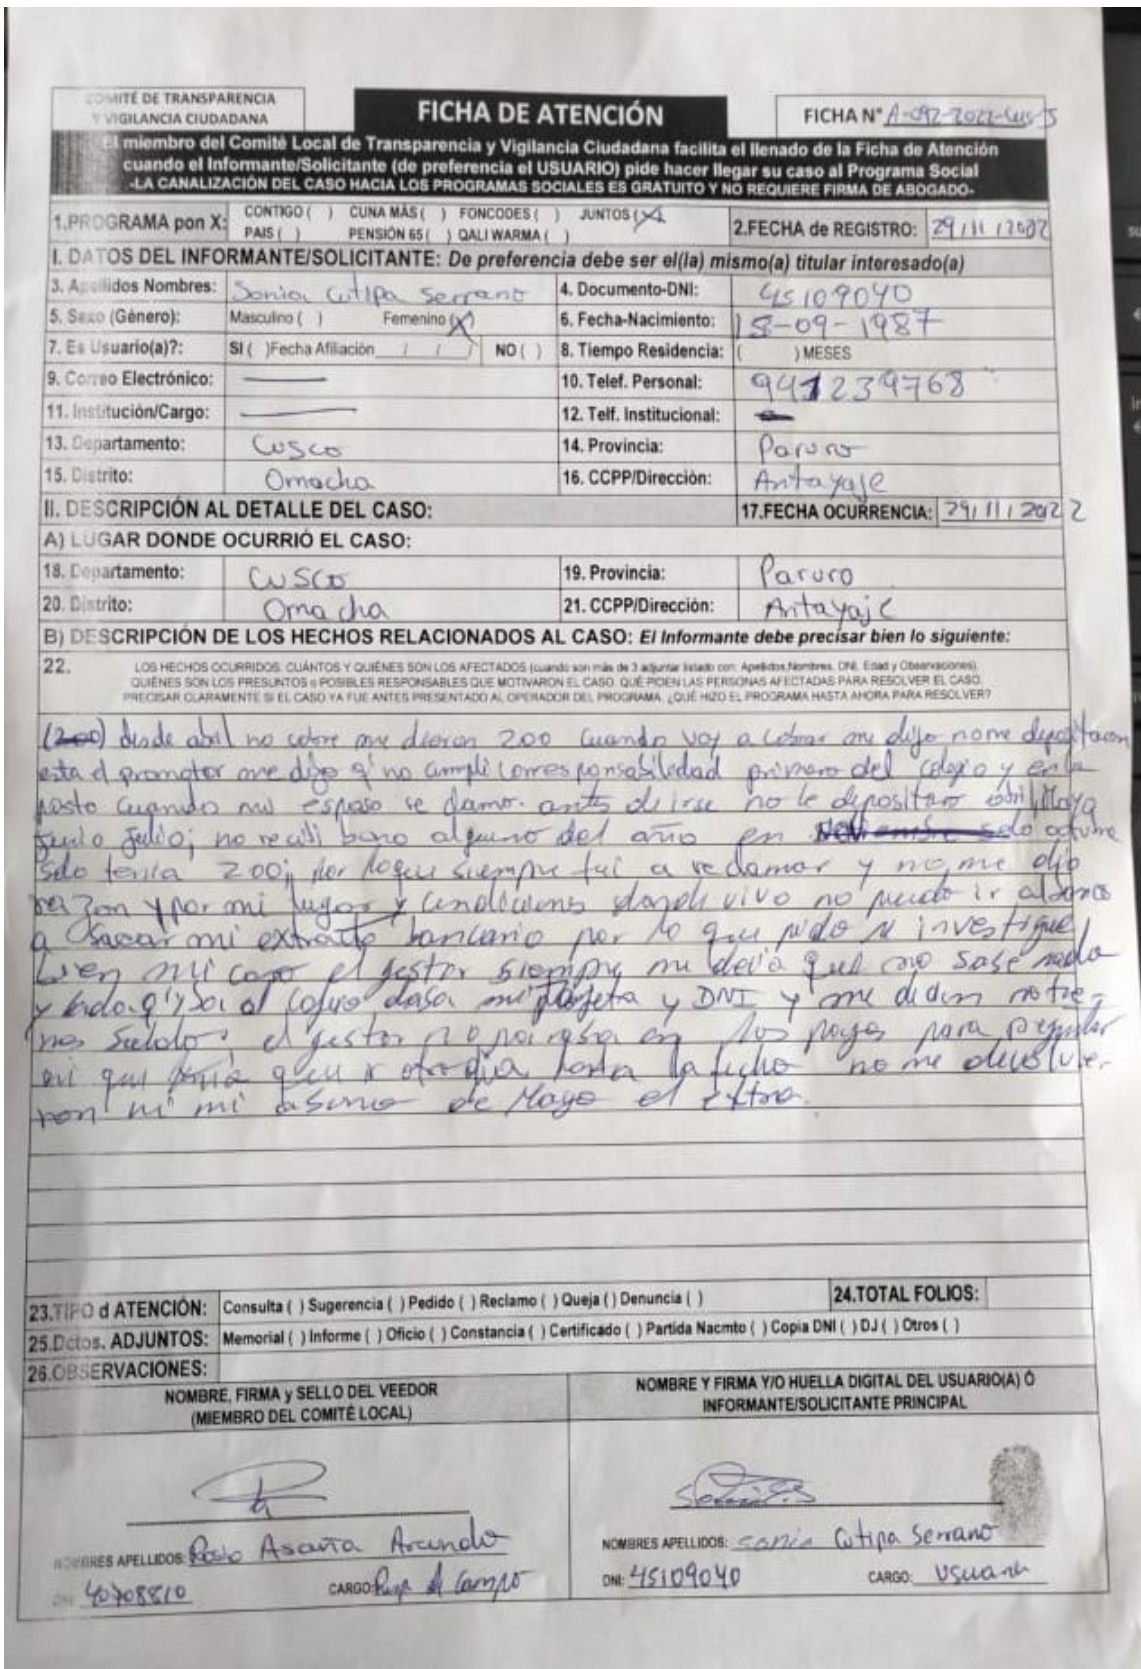 COMITÉ DE TRANSPARENCIA
Y VIGILANCIA CIUDADANA
FICHA DE ATENCIÓN
FICHA N° A-092-2022-Cus-J
El miembro del Comité Local de Transparencia y Vigilancia Ciudadana facilita el llenado de la Ficha de Atención
cuando el Informante/Solicitante (de preferencia el USUARIO) pide hacer llegar su caso al Programa Social
-LA CANALIZACIÓN DEL CASO HACIA LOS PROGRAMAS SOCIALES ES GRATUITO Y NO REQUIERE FIRMA DE ABOGADO-
1.PROGRAMA pon X: CONTIGO ( ) CUNA MÁS ( ) FONCODES ( ) JUNTOS (X)
PAIS ( ) PENSIÓN 65 ( ) QALI WARMA ( )
2.FECHA de REGISTRO: 29/11/2022
I. DATOS DEL INFORMANTE/SOLICITANTE: De preferencia debe ser el(la) mismo(a) titular interesado(a)
3. Apellidos Nombres: Sonia Cutipa Serrano 4. Documento-DNI: 45109040
5. Sexo (Género): Masculino ( ) Femenino (X) 6. Fecha-Nacimiento: 15-09-1987
7. Es Usuario(a)?: SI ( )Fecha Afiliación / / NO ( ) 8. Tiempo Residencia: ( ) MESES
9. Correo Electrónico: 10. Telef. Personal: 941239768
11. Institución/Cargo: 12. Telf. Institucional:
13. Departamento: Cusco 14. Provincia: Paruro
15. Distrito: Omacha 16. CCPP/Dirección: Antayaje
II. DESCRIPCIÓN AL DETALLE DEL CASO: 17.FECHA OCURRENCIA: 29/11/2022
A) LUGAR DONDE OCURRIÓ EL CASO:
18. Departamento: Cusco 19. Provincia: Paruro
20. Distrito: Omacha 21. CCPP/Dirección: Antayaje
B) DESCRIPCIÓN DE LOS HECHOS RELACIONADOS AL CASO: El Informante debe precisar bien lo siguiente:
22. LOS HECHOS OCURRIDOS. CUÁNTOS Y QUIÉNES SON LOS AFECTADOS (cuando son más de 3 adjuntar listado con: Apellidos,Nombres, DNI, Edad y Observaciones).
QUIÉNES SON LOS PRESUNTOS o POSIBLES RESPONSABLES QUE MOTIVARON EL CASO. QUÉ PIDEN LAS PERSONAS AFECTADAS PARA RESOLVER EL CASO.
PRECISAR CLARAMENTE SI EL CASO YA FUE ANTES PRESENTADO AL OPERADOR DEL PROGRAMA. ¿QUÉ HIZO EL PROGRAMA HASTA AHORA PARA RESOLVER?
(200) desde abril no cobre me dieron 200 cuando voy a cobrar me dijo no me depositaron
esta el promotor me dijo q' no cumpli corresponsabilidad primero del colegio y en la
posta cuando mi esposo se antes de irse no le depositaro abril Mayo
Junio Julio; no recibi bono alguno del año en solo octubre
solo tenia 200; por lo que siempre fui a reclamar y no me dio
razon y por mi lugar y condiciones donde vivo no puedo ir
a sacar mi extracto bancario por lo que pido se investigue
bien mi caso el gestor siempre me decia que no sabe nada
y mi tarjeta y DNI y me dicen no tie-
nes saldo, el gestor no en los pagos para preguntar
hasta la fecho no me devolvie-
ron ni mi de Mayo el extra.
23.TIPO d ATENCIÓN: Consulta ( ) Sugerencia ( ) Pedido ( ) Reclamo ( ) Queja ( ) Denuncia ( ) 24.TOTAL FOLIOS:
25.Dctos. ADJUNTOS: Memorial ( ) Informe ( ) Oficio ( ) Constancia ( ) Certificado ( ) Partida Nacmto ( ) Copia DNI ( ) DJ ( ) Otros ( )
26.OBSERVACIONES:
NOMBRE, FIRMA y SELLO DEL VEEDOR
(MIEMBRO DEL COMITÉ LOCAL)
NOMBRE Y FIRMA Y/O HUELLA DIGITAL DEL USUARIO(A) Ó
INFORMANTE/SOLICITANTE PRINCIPAL
NOMBRES APELLIDOS: Asarta
DNI: 40708810 CARGO: Campo
NOMBRES APELLIDOS: Sonia Cutipa Serrano
DNI: 45109040 CARGO: Usuaria